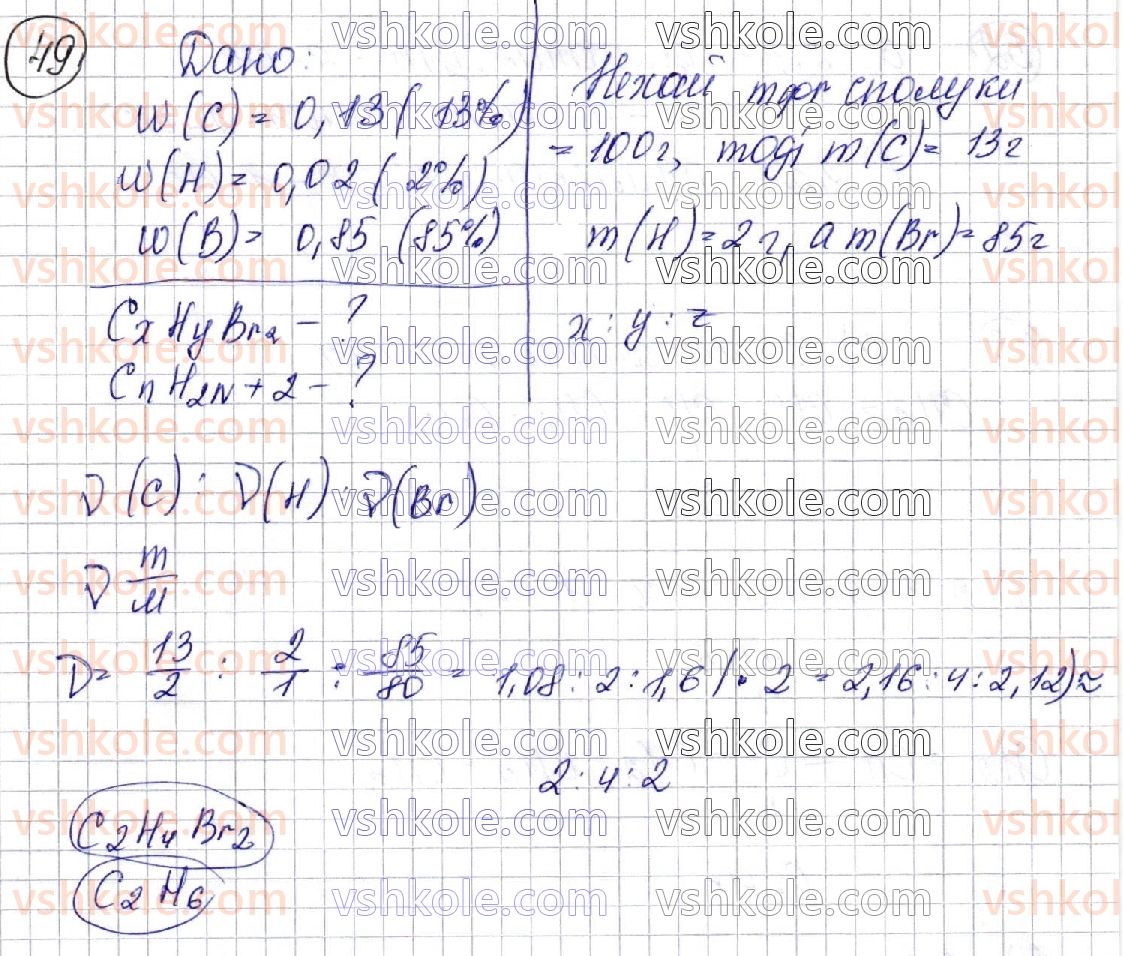 49
Дано:
w(C) = 0,13 (13%)
w(H) = 0,02 (2%)
w(B) = 0,85 (85%)
CxHyBrz - ?
CnH2N+2 - ?
Нехай
сполуки
= 100г, тоді m(C) = 13г
m(H) = 2г, а m(Br) = 85г
x : y : z
ν(C) : ν(H) : ν(Br)
ν m/M
ν = 13/2 : 2/1 : 85/80 = 1,08 : 2 : 1,6 | · 2 = 2,16 : 4 : 2,12) ≈
2 : 4 : 2
C2H4Br2
C2H6
vshkole.com